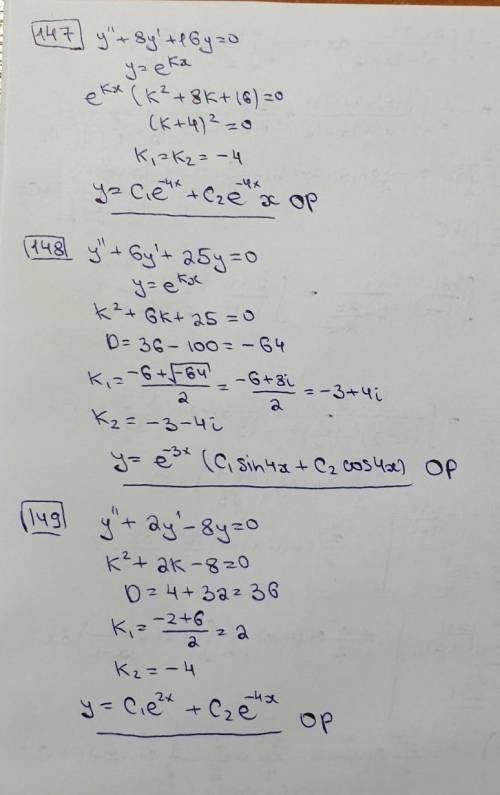 147 y'' + 8y' + 16y = 0
y = e^{kx}
e^{kx} (k² + 8k + 16) = 0
(k + 4)² = 0
k₁ = k₂ = -4
y = C₁e^{-4x} + C₂e^{-4x} x ОР
148 y'' + 6y' + 25y = 0
y = e^{kx}
k² + 6k + 25 = 0
D = 36 - 100 = -64
k₁ = \frac{-6 + \sqrt{-64}}{2} = \frac{-6 + 8i}{2} = -3 + 4i
k₂ = -3 - 4i
y = e^{-3x} (C₁ sin4x + C₂ cos4x) ОР
149 y'' + 2y' - 8y = 0
k² + 2k - 8 = 0
D = 4 + 32 = 36
k₁ = \frac{-2 + 6}{2} = 2
k₂ = -4
y = C₁e^{2x} + C₂e^{-4x} ОР